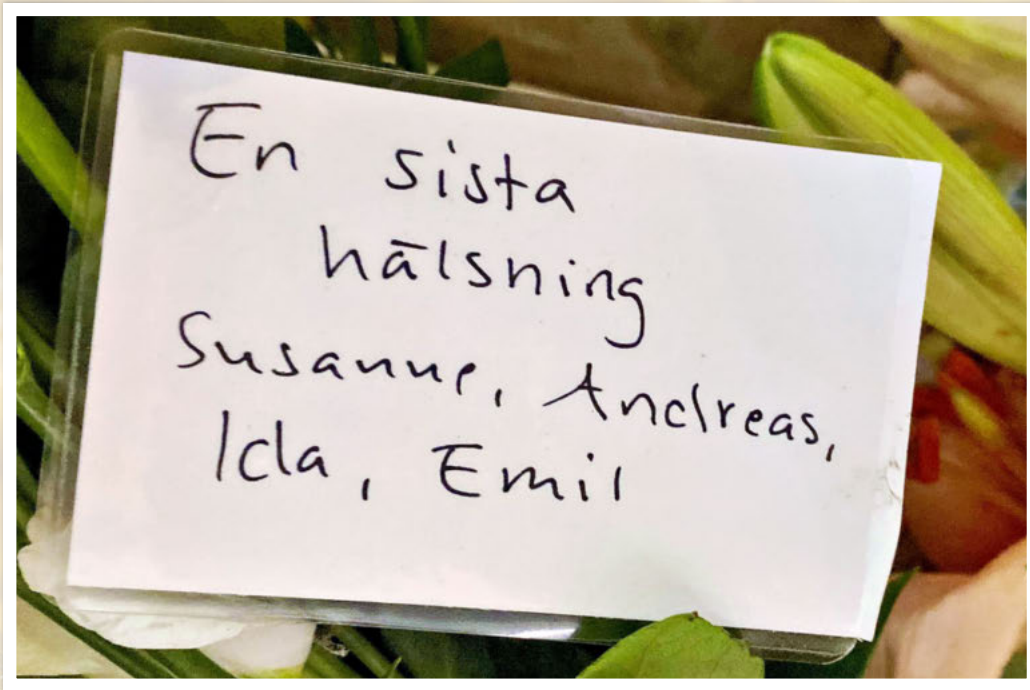 En sista
hälsning
Susanne, Andreas,
Ida, Emil